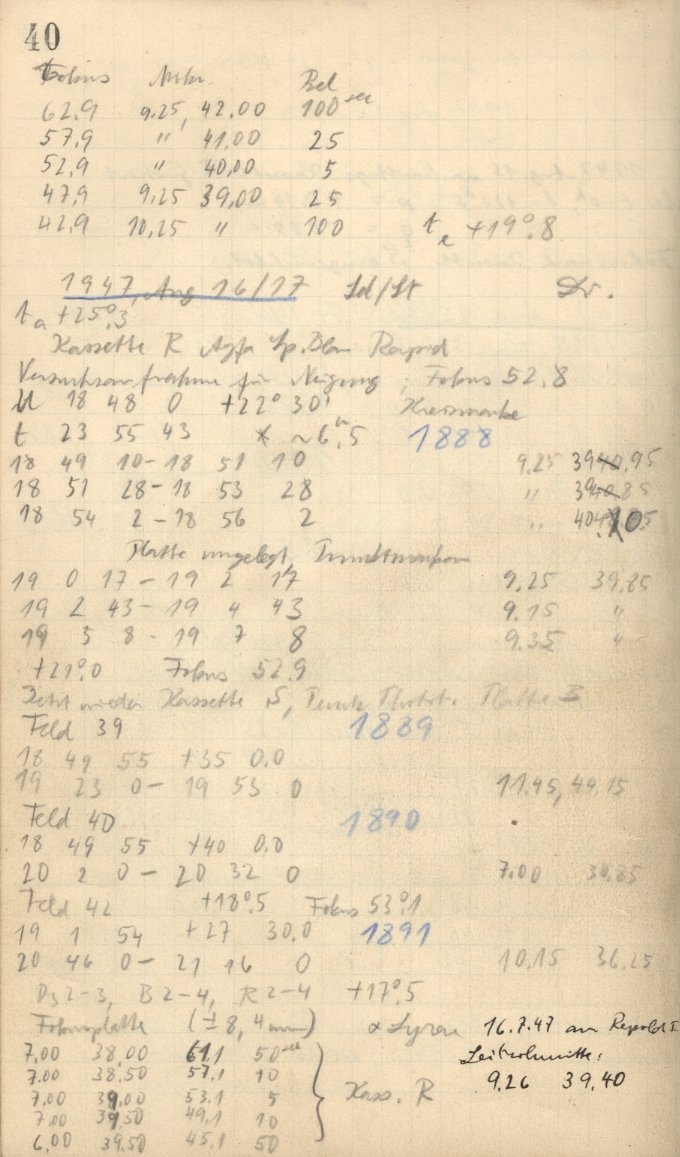 40
Fokus Mikr. Bel
62,9 9.25, 42,00 100 sec
57,9 " 41,00 25
52,9 " 40,00 5
47,9 9,25 39,00 25
42,9 10,25 " 100 te +19°.8
1947, Aug 16/17 Sd/St Dr.
ta +25°.3
Kassette R Agfa Sp. Blau Rapid
Versuchsaufnahme für Neigung; Fokus 52.8
U 18 48 0 +22° 30' Kreismarke
t 23 55 43 * ~6m.5 1888
18 49 10 - 18 51 10 9.25 39.95
18 51 28 - 18 53 28 " 39.85
18 54 2 - 18 56 2 " 40
Platte umgelegt,
19 0 17 - 19 2 17 9.25 39.85
19 2 43 - 19 4 43 9.15 "
19 5 8 - 19 7 8 9.35 "
+21°.0 Fokus 52.9
Jetzt wieder Kassette S, Platte
Feld 39 1889
18 49 55 +35 0,0
19 23 0 - 19 53 0 11.45, 44.15
Feld 40 1890
18 49 55 +40 0,0
20 2 0 - 20 32 0 7.00 38.85
Feld 42 +18°.5 Fokus 53°.1
19 1 54 +27 30,0 1891
20 46 0 - 21 16 0 10.15 36.25
Ds 2-3, B 2-4, R 2-4 +17°.5
Fokusplatte (±8, 4mm) α Lyrae 16.7.47 am Repsold I
7,00 38,00 61.1 50 sec Leitschnitte:
7.00 38,50 57.1 10 9.26 39.40
7,00 39,00 53.1 5 Kass. R
7,00 39,50 49.1 10
6,00 39,50 45.1 50